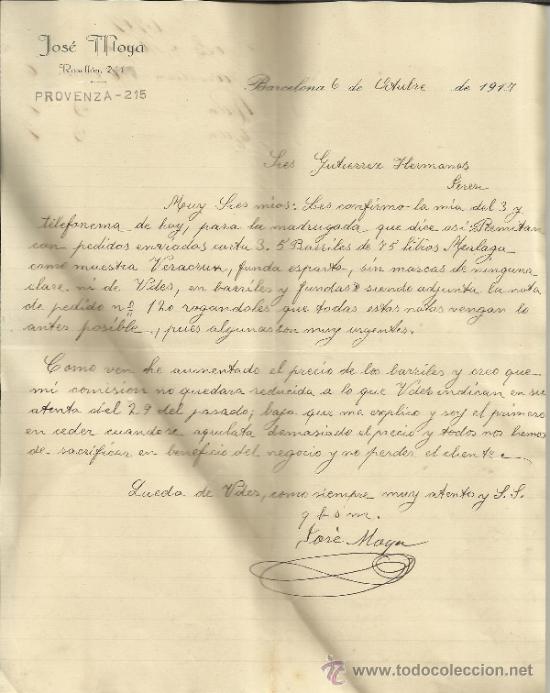 José Moya
Rosellón, 2
PROVENZA-215
Barcelona 6 de Octubre de 1917
Sres Gutierrez Hermanos
Jerez
Muy Sres mios: Les confirmo la mia del 3 y
telefonema de hoy, para la madrugada que dice asi "Remitan
con pedidos enviados carta 3, 5 Barriles de 75 litros Malaga
como muestra Veracruz, funda esparto, sin marcas de ninguna
clase ni de Vdes, en barriles y fundas" siendo adjunta la nota
de pedido nº 120 rogandoles que todas estas notas vengan lo
antes posible, pues algunas son muy urgentes.
Como ven he aumentado el precio de los barriles y creo que
mi comision no quedara reducida a lo que Vdes indican en su
atenta del 29 del pasado; baja que me explico y soy el primero
en ceder cuando se aquilata demasiado el precio y todos nos hemos
de sacrificar en beneficio del negocio y no perder el cliente.
Queda de Vdes, como siempre muy atento y S.S.
q b s m.
José Moya
todocoleccion
www.todocoleccion.net